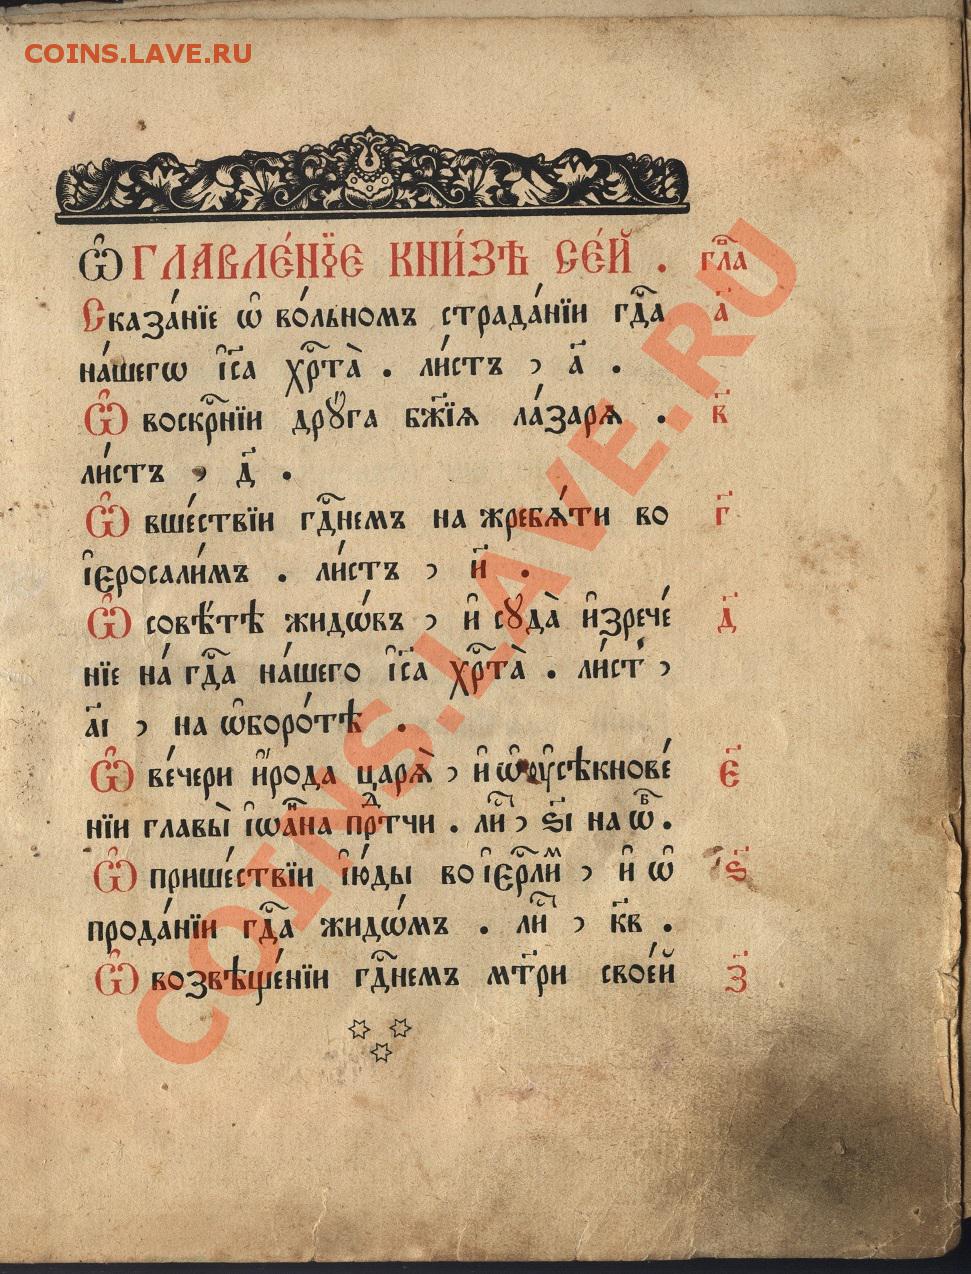 COINS.LAVE.RU
Ѡ҆ГЛАВЛЕ́НЇЕ КНИ́ЗѢ СЕ́Й . гл҃ва
Сказа́нїе ѡ҆ во́льномъ страда́нїи гдⷭ҇а а҃
на́шегѡ і҆и҃са хрⷭ҇та̀ . ли́стъ , а҃ .
Ѡ҆ воскрⷭ҇нїи дрꙋ́га бж҃їѧ ла́зарѧ . в҃
ли́стъ , д҃ .
Ѡ҆ вше́ствїи гдⷭ҇немъ на жребѧ́ти во г҃
і҆еросали́мъ . ли́стъ , и҃ .
Ѡ҆ совѣ́тѣ жидѡ́въ , и҆ сꙋда̀ и҆зрече́ д҃
нїе на́ гдⷭ҇а на́шего і҆и҃са хрⷭ҇та̀ . ли́ст , 
а҃і , на ѡ҆боро́тѣ .
Ѡ҆ ве́чери и҆́рода царѧ̀ , и҆ ѡ҆ ᲂу҆сѣкнове́ е҃
нїи главы̀ і҆ѡа́нна прⷣтчи . лиⷭ , ѕ҃і на ѡ҆ⷠ .
Ѡ҆ прише́ствїи і҆ю́ды во і҆ерⷭ҇лиⷨ , и҆ ѡ҆ ѕ҃
прода́нїи гдⷭ҇а жидѡ́мъ . лиⷭ , к҃в .
Ѡ҆ возвѣще́нїи гдⷭ҇немъ мт҃ри свое́й з҃
COINS.LAVE.RU